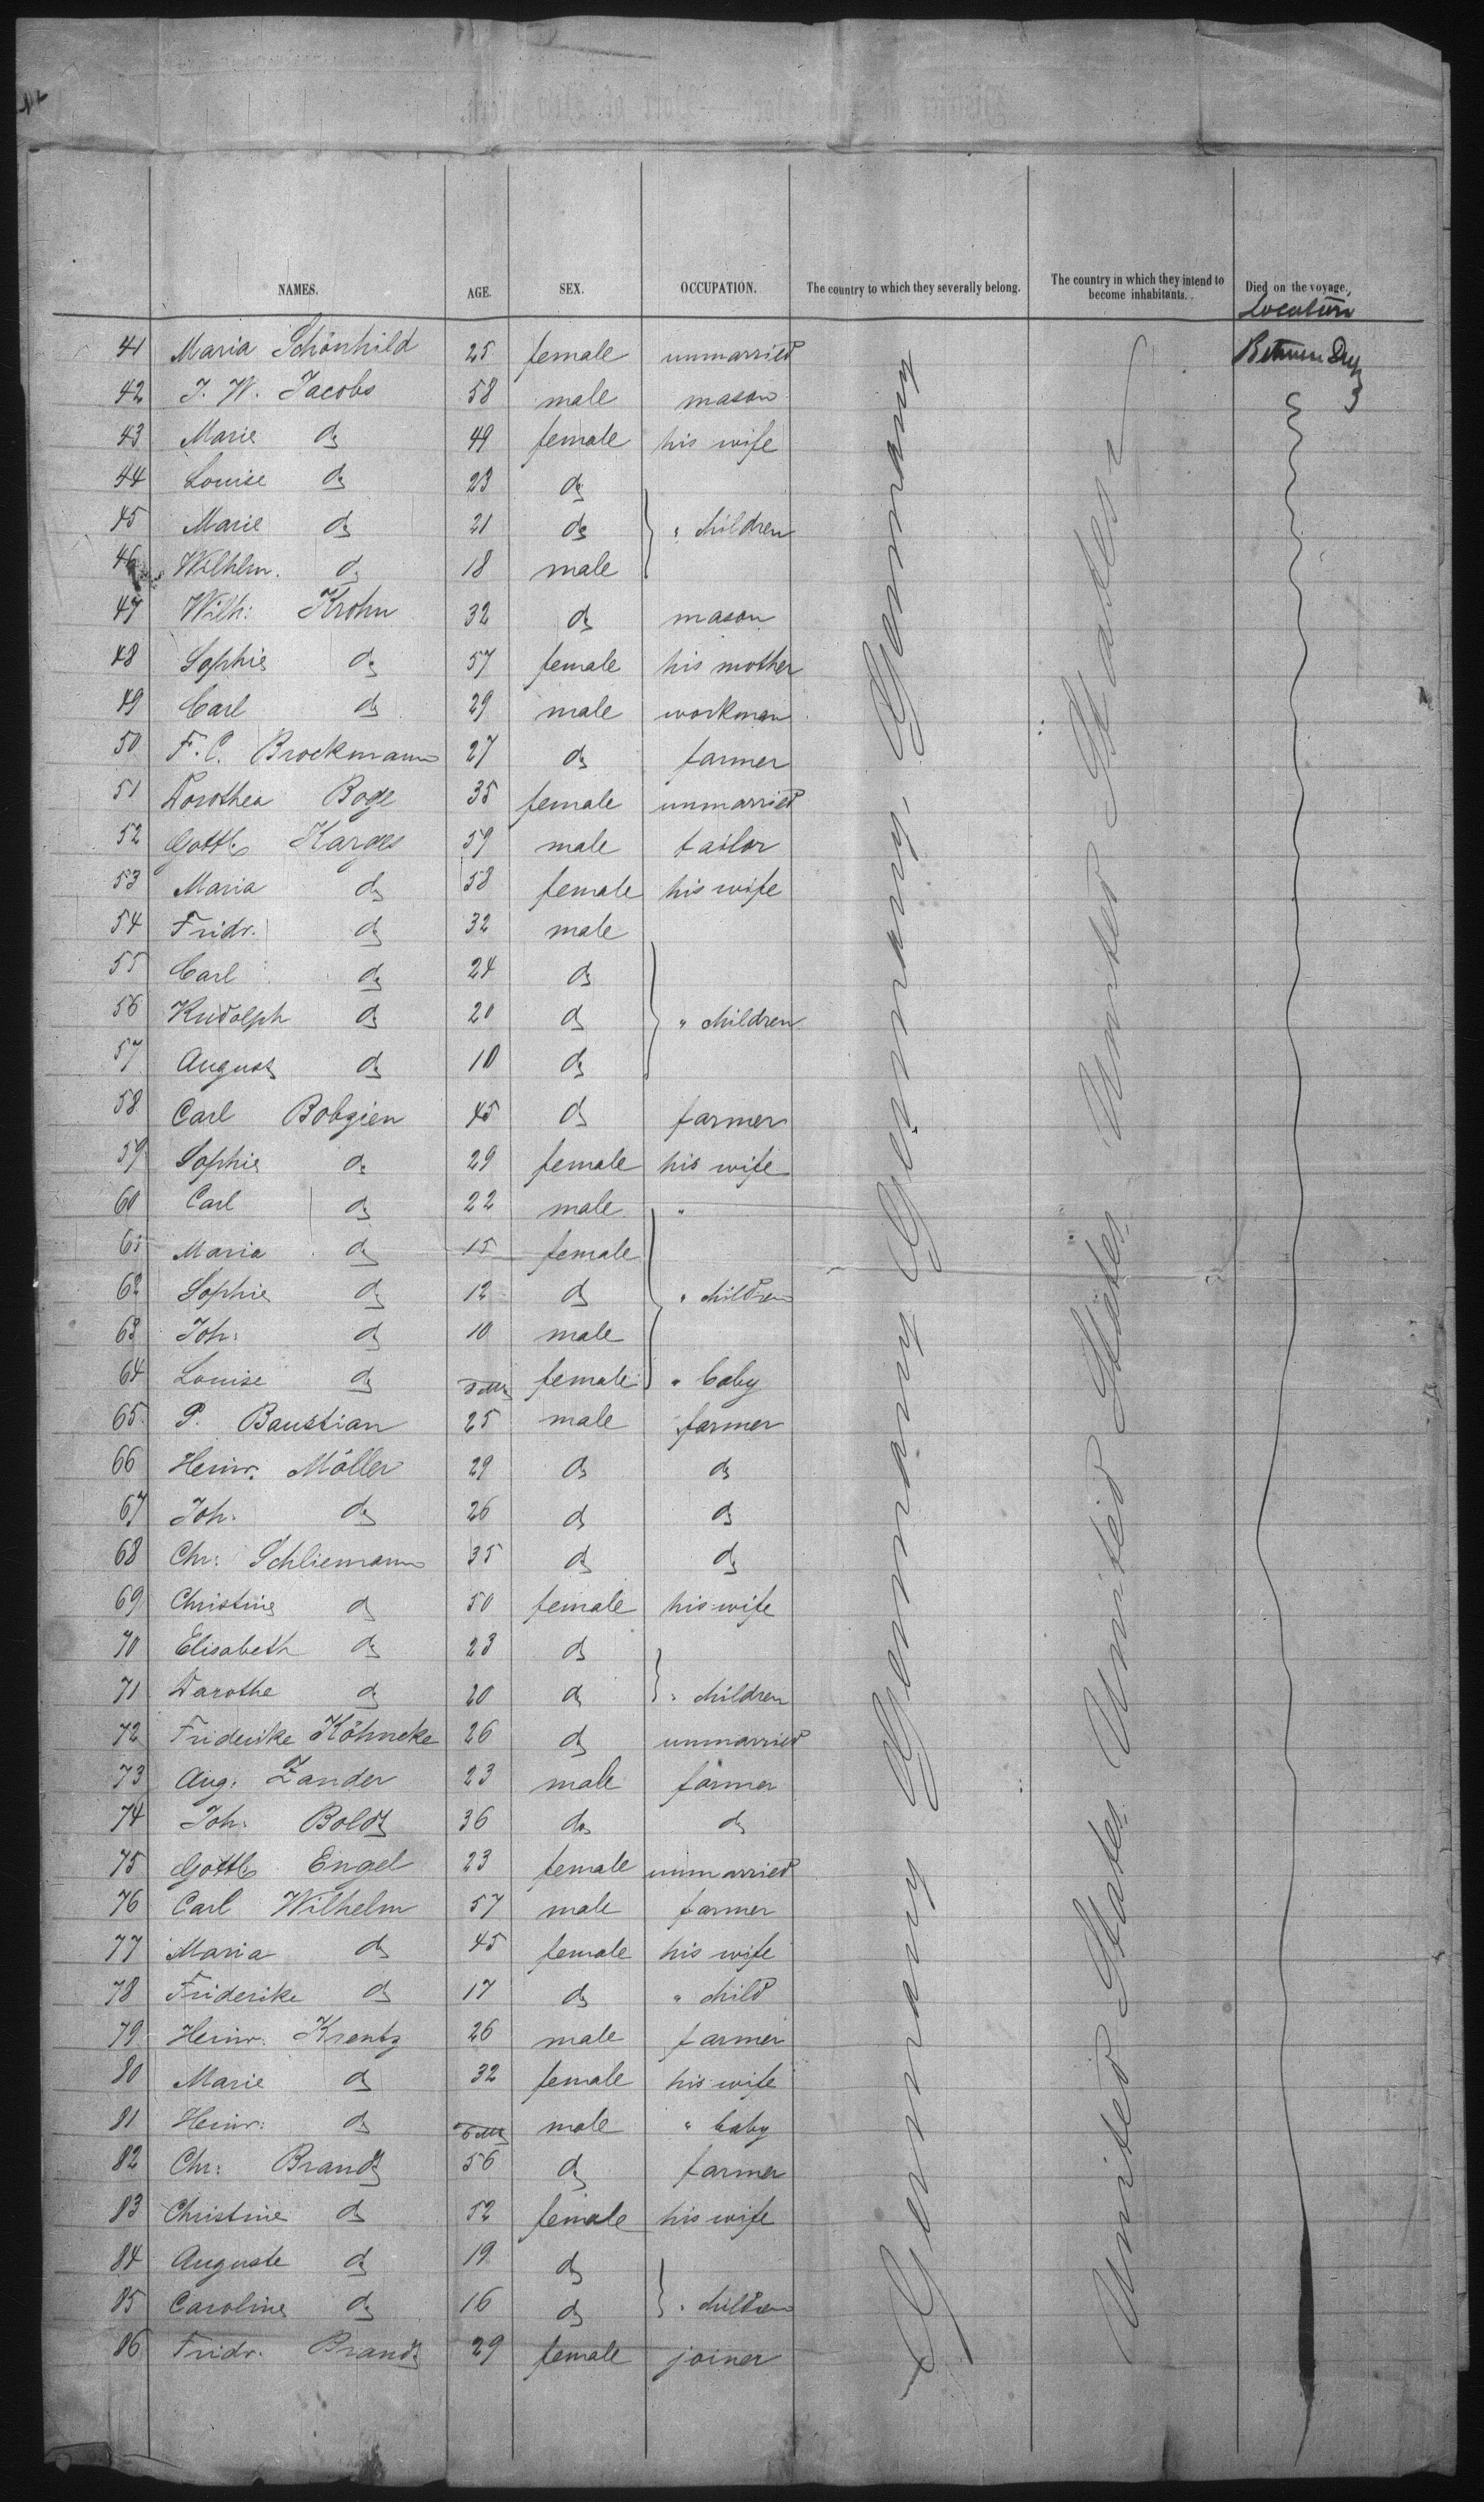 NAMES. AGE. SEX. OCCUPATION. The country to which they severally belong. The country in which they intend to become inhabitants. Died on the voyage.
Location
41 Maria Schönhild 25 female unmarried
42 J. W. Jacobs 58 male mason
43 Marie do 49 female his wife
44 Louise do 23 do
45 Marie do 21 do " children
46 Wilhlm. do 18 male
47 Wilh: Krohn 32 do mason
48 Sophie do 57 female his mother
49 Carl do 29 male workman
50 F. C. Brockmann 27 do farmer
51 Dorothea Boge 35 female unmarried
52 Gottl. Karges 59 male tailor
53 Maria do 58 female his wife
54 Fridr. do 32 male
55 Carl do 24 do
56 Rudolph do 20 do " children
57 August do 10 do
58 Carl Bobzien 45 do farmer
59 Sophie do 29 female his wife
60 Carl do 22 male "
61 Maria do 15 female
62 Sophie do 12 do " children
63 Joh: do 10 male
64 Louise do female " baby
65 P. Baustian 25 male farmer
66 Heinr. Möller 29 do do
67 Joh. do 26 do do
68 Chr: Schliemann 35 do do
69 Christine do 50 female his wife
70 Elisabeth do 23 do
71 Darothe do 20 do " children
72 Friderike Köhncke 26 do unmarried
73 Aug: Zander 23 male farmer
74 Joh. Boldt 36 do do
75 Gottl. Engel 23 female unmarried
76 Carl Wilhelm 57 male farmer
77 Maria do 45 female his wife
78 Friderike do 17 do " child
79 Heinr. Krentz 26 male farmer
80 Marie do 32 female his wife
81 Heinr: do male " baby
82 Chr: Brandt 56 do farmer
83 Christine do 52 female his wife
84 Auguste do 19 do
85 Caroline do 16 do " children
86 Fridr. Brandt 29 female joiner
Germany Germany Germany. Germany
United States United States United States United States